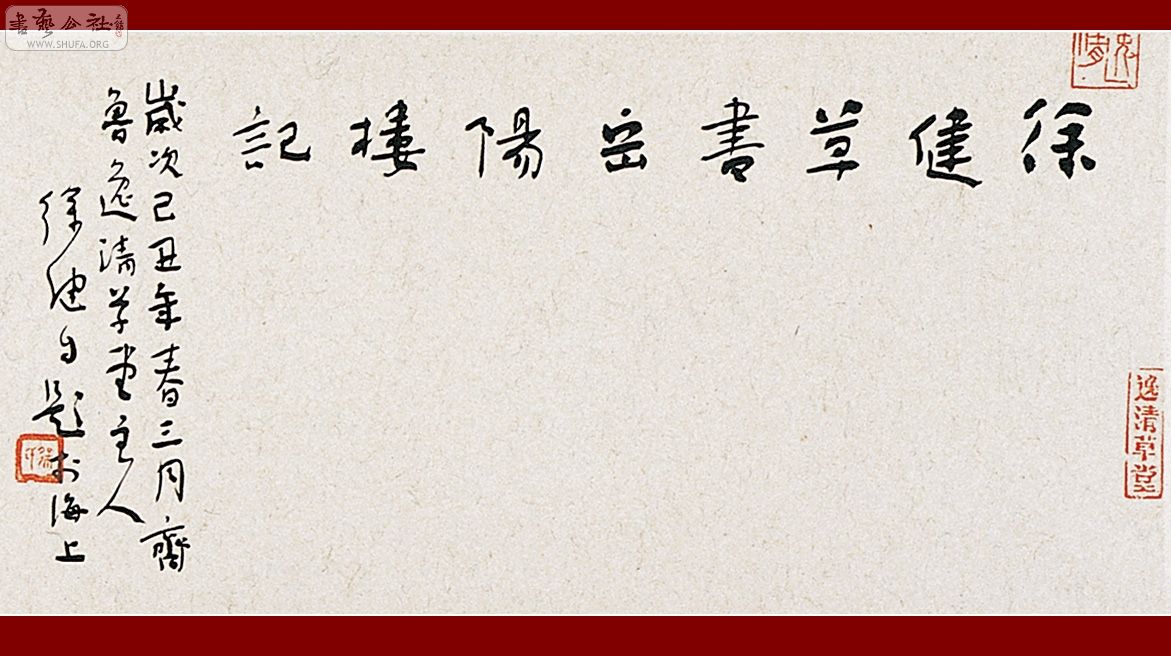 徐健草書岳陽樓記
歲次己丑年春三月齊
魯逸清草堂主人
徐健自題於海上
逸清草堂
書藝公社
WWW.SHUFA.ORG